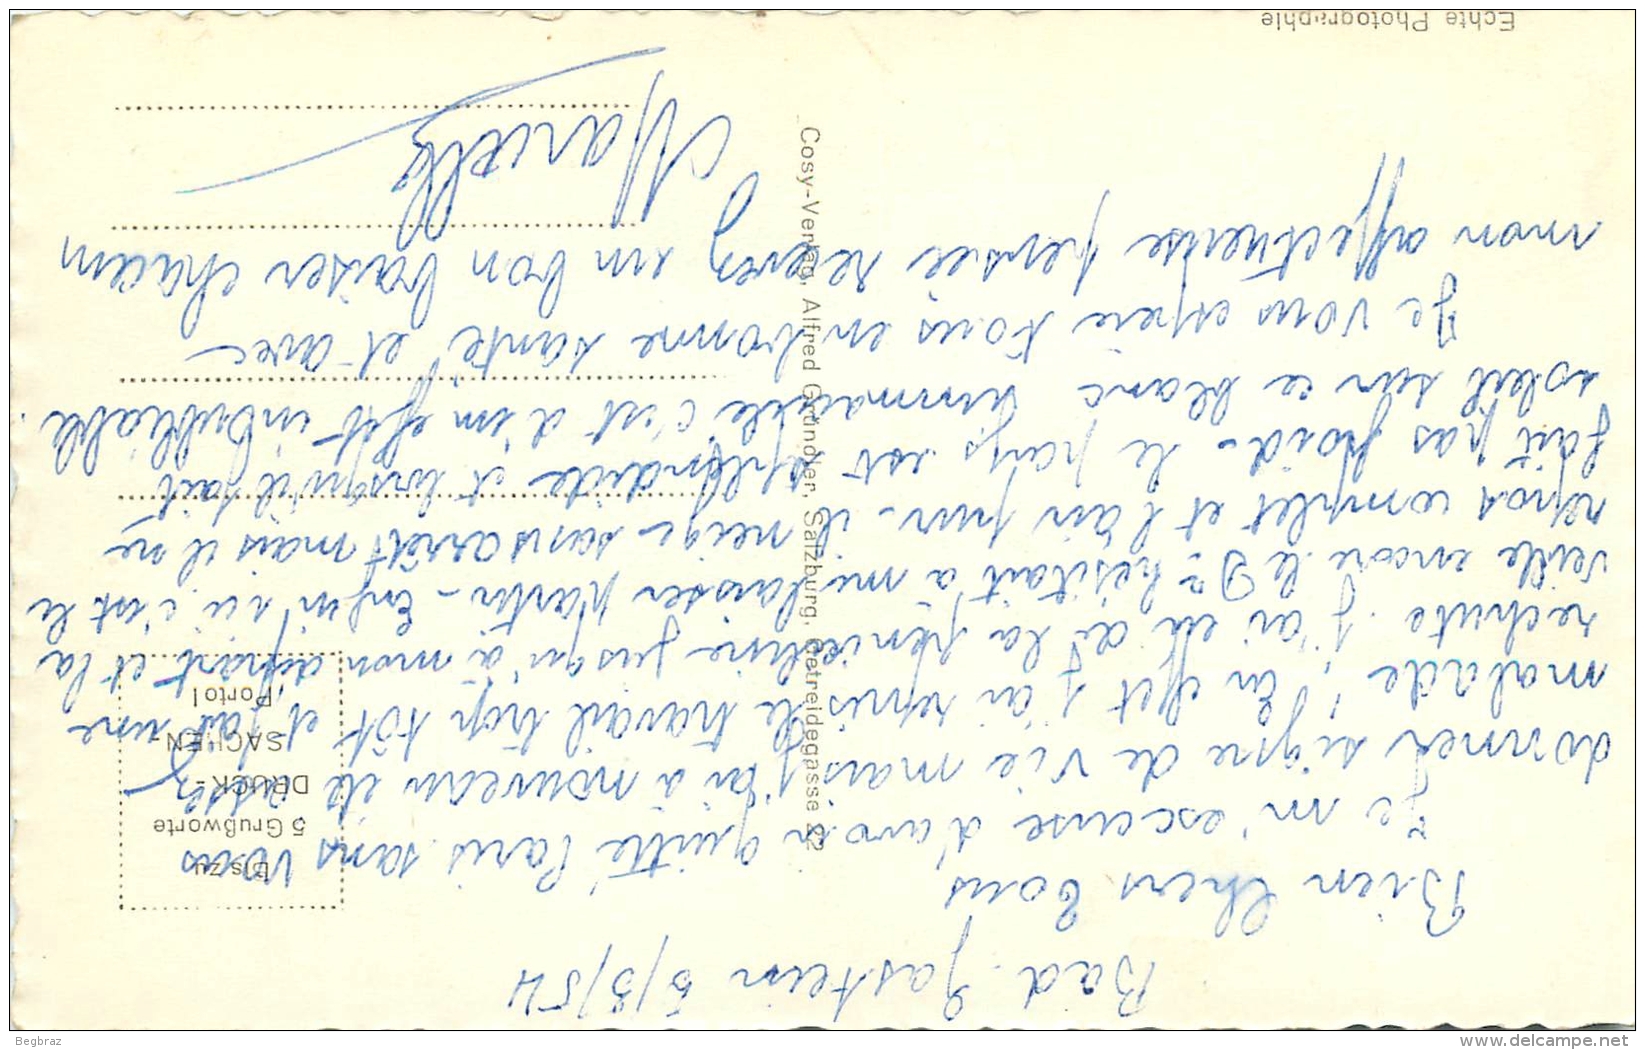 Bad Gastein 5/3/54
Bien Chers Tous
Je m'excuse d'avoir quitté Paris sans vous
donner signe de vie mais j'ai à nouveau été assez
malade, en effet j'ai repris le travail trop tôt et fait une
rechute. J'ai eu de la pénicilline jusqu'à mon départ et la
veille encore le Dr hésitait à me laisser partir - Enfin ici c'est le
repos complet et l'air pur - il neige sans arrêt mais il ne
fait pas froid - le pays est splendide et lorsqu'il fait
soleil sur ce blanc immaculé c'est d'un effet inoubliable.
Je vous espère tous en bonne santé et avec
mon affectueuse pensée recevez un bon baiser chacun
Marcelle
Bis zu
5 Grußworte
DRUCK-
SACHEN-
Porto!
Cosy-Verlag, Alfred Gründler, Salzburg, Getreidegasse 22
Echte Photographie
Begbraz
delcampe.net